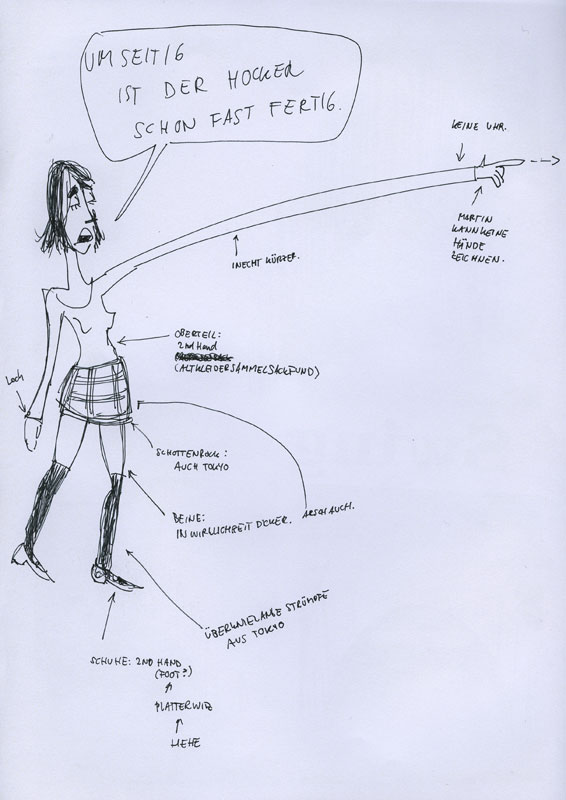 UMSEITIG
IST DER HOCKER
SCHON FAST FERTIG.
KEINE UHR.
MARTIN
KANN KEINE
HÄNDE
ZEICHNEN.
IN ECHT KÜRZER.
OBERTEIL:
2nd Hand
(ALTKLEIDERSAMMELSACKFUND)
Loch
SCHOTTENROCK:
AUCH TOKYO
BEINE:
IN WIRKLICHKEIT DICKER. ARSCH AUCH.
ÜBERKNIELANGE STRÜMPFE
AUS TOKYO
SCHUHE: 2ND HAND
(FOOT?)
PLATTERWITZ
HEHE